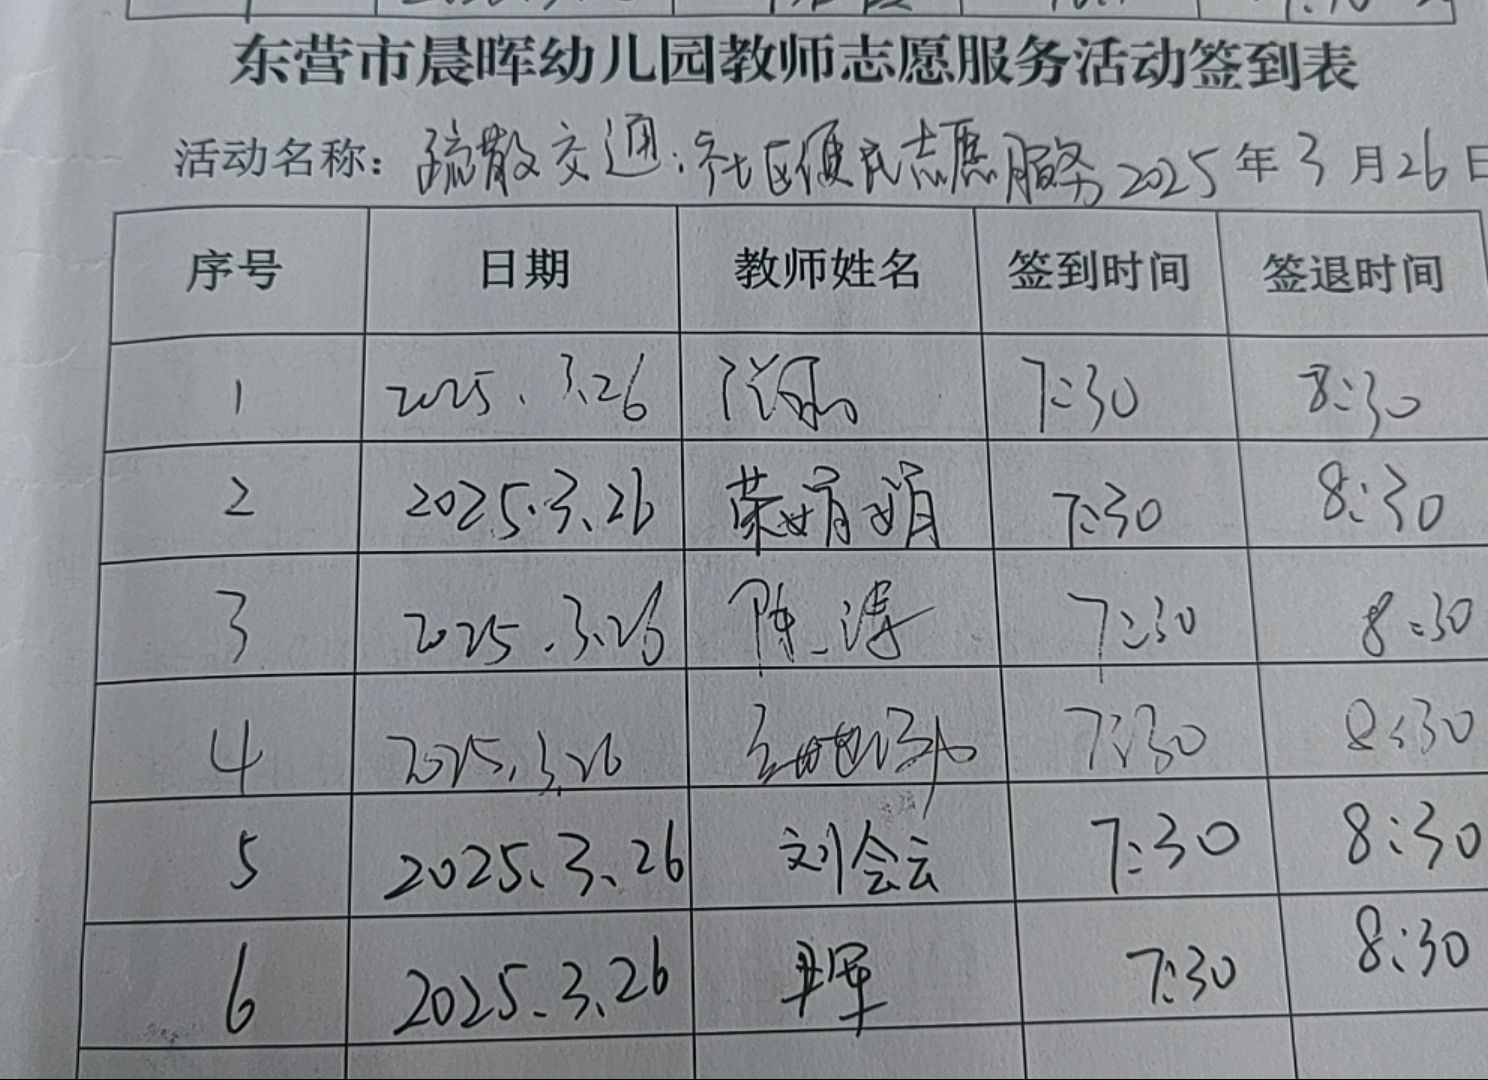 东营市晨晖幼儿园教师志愿服务活动签到表
活动名称：疏散交通·社区便民志愿服务 2025年3月26日
序号 日期 教师姓名 签到时间 签退时间
1 2025.3.26 7:30 8:30
2 2025.3.26 荣娟娟 7:30 8:30
3 2025.3.26 陈涛 7:30 8:30
4 2025.3.26 7:30 8:30
5 2025.3.26 刘会云 7:30 8:30
6 2025.3.26 7:30 8:30